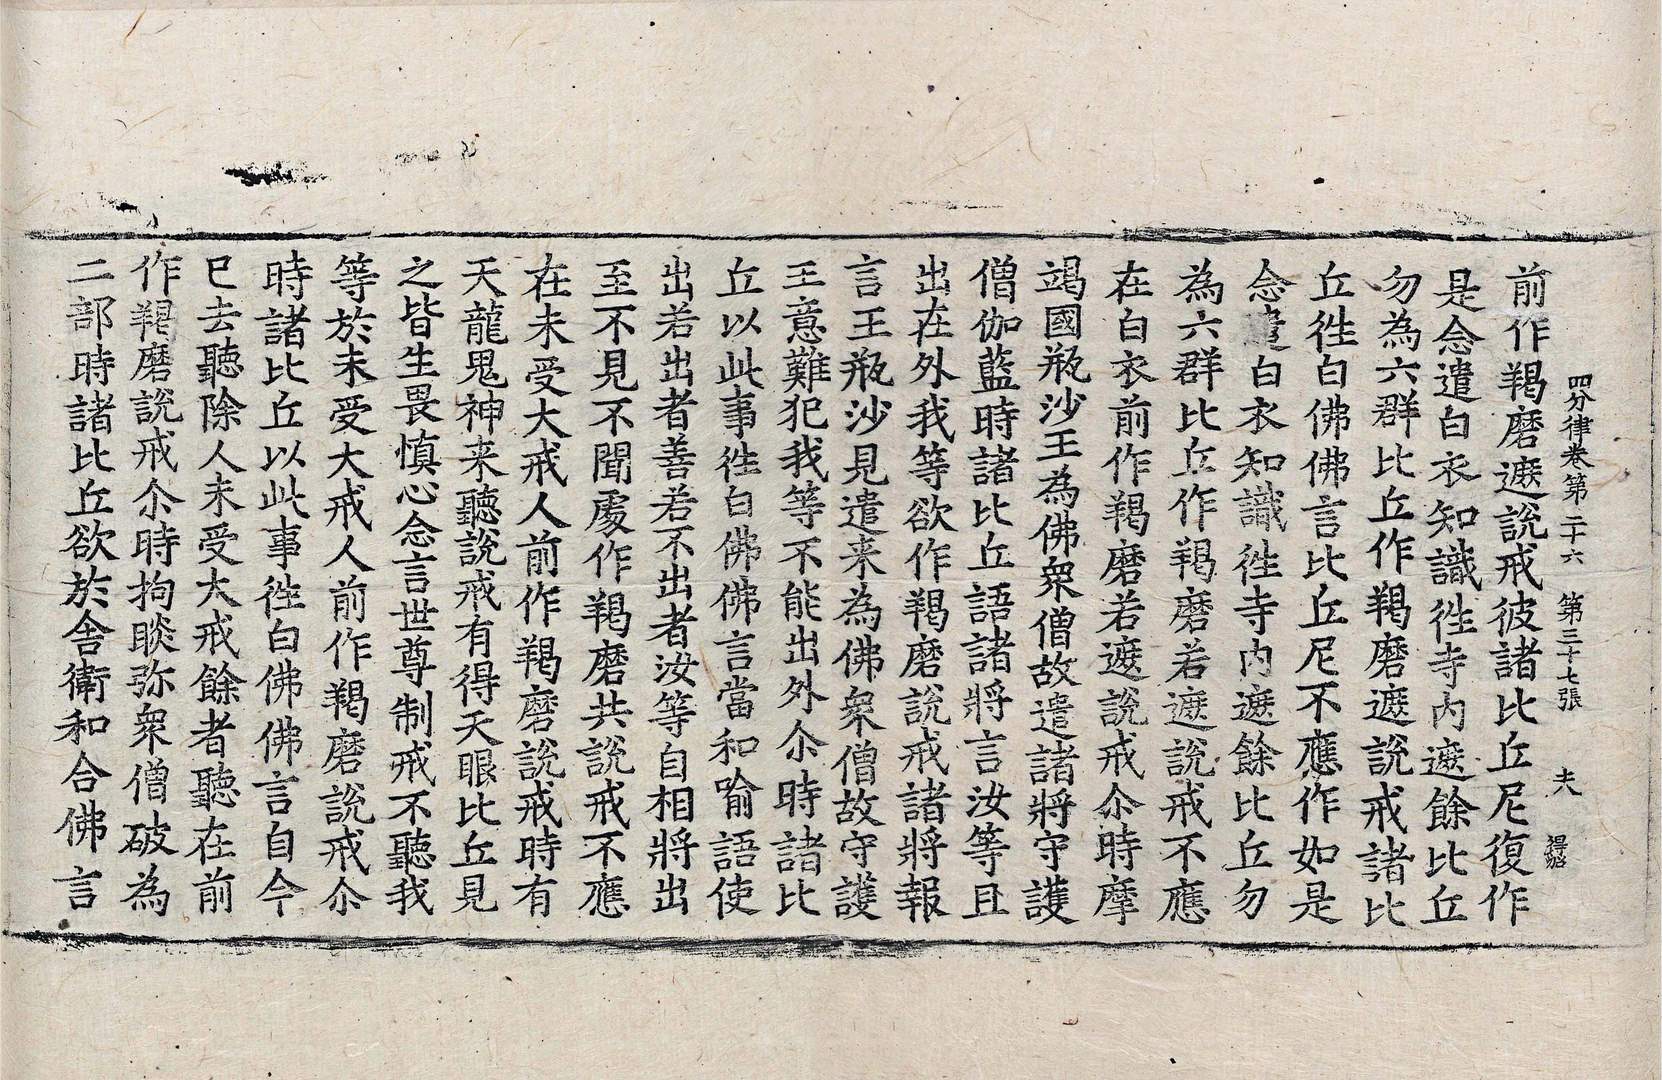 四分律卷第三十六 第三十七張 夫
前作羯磨遮說戒彼諸比丘尼復作
是念遣白衣知識徃寺內遮餘比丘
勿為六群比丘作羯磨遮說戒諸比
丘徃白佛佛言比丘尼不應作如是
念遣白衣知識徃寺內遮餘比丘勿
為六群比丘作羯磨若遮說戒不應
在白衣前作羯磨若遮說戒尒時摩
竭國瓶沙王為佛衆僧故遣諸將守護
僧伽藍時諸比丘語諸將言汝等且
出在外我等欲作羯磨說戒諸將報
言王瓶沙見遣来為佛衆僧故守護
王意難犯我等不能出外尒時諸比
丘以此事徃白佛佛言當和喻語使
出若出者善若不出者汝等自相將出
至不見不聞處作羯磨共說戒不應
在未受大戒人前作羯磨說戒時有
天龍鬼神来聽說戒有得天眼比丘見
之皆生畏慎心念言世尊制戒不聽我
等於未受大戒人前作羯磨說戒尒
時諸比丘以此事徃白佛佛言自今
已去聽除人未受大戒餘者聽在前
作羯磨說戒尒時拘睒弥衆僧破為
二部時諸比丘欲於舍衛和合佛言